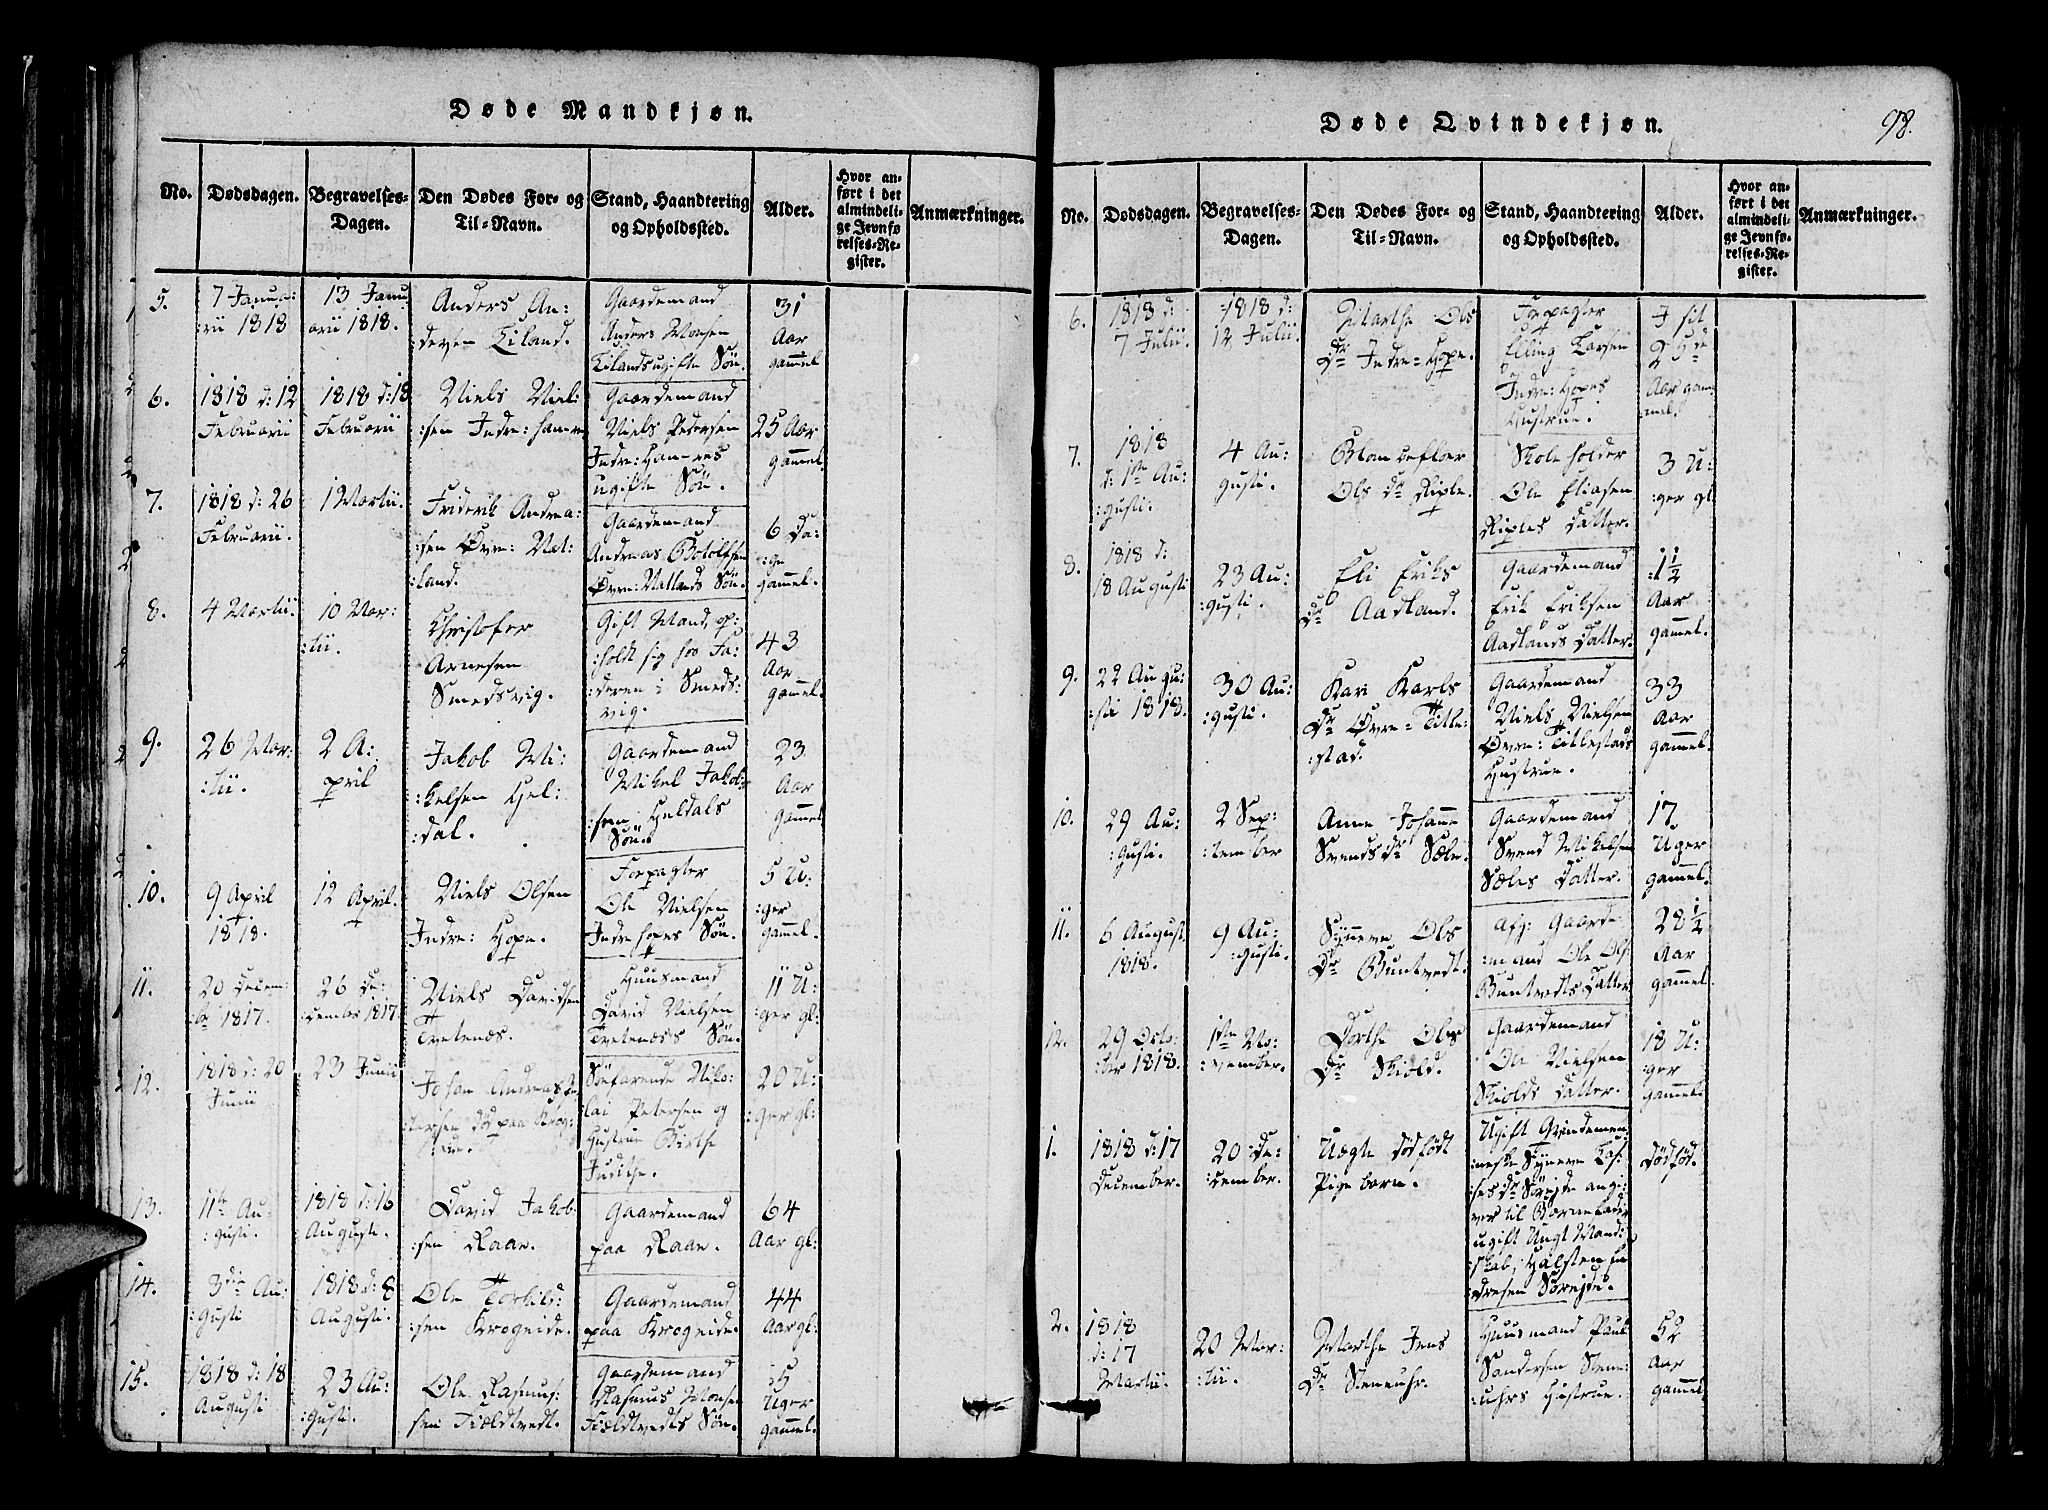 Døde Mandkjøn.
No.
Dødsdagen.
Begravelses-
Dagen.
Den Dødes For- og
Til-Navn.
Stand, Haandtering
og Opholdssted.
Alder.
Hvor an-
ført i det
almindeli-
ge Jevnfø
relses-Re-
gister.
Anmærkninger.
5.
7 Janua:
:rii 1818
13 Janu
arii 1818.
Anders An:
:dersen Tiland.
Gaardemand
Anders Monsen
Tilands ugifte Søn.
31
Aar
gammel
6.
1818 d: 12
Februarii
1818 d: 18
Februarii
Niels Niel:
:sen Indre: Hamre
Gaardemand
Niels Pedersen
Indre: Hamres
ugifte Søn.
25 Aar
gammel
7.
1818 d: 26
Februarii.
1 Martii.
Friderik Andrea:
:sen Øvre: Vat:
:land.
Gaardemand
Andreas Botolfsen
Øvre: Vatlands Søn.
6 Da:
:ge
gammel.
8.
4 Martii.
10 Mar:
:tii.
Christofer
Arnesen
Smedsvig.
Gift Mand, op:
:holt sig hos Fa:
:deren i Smeds:
vig.
43
Aar
gammel.
9.
26 Mar:
:tii.
2 A:
pril
Jakob Mi:
:kelsen Hjel:
:dal.
Gaardemand
Mikel Jakob:
:sen Hjeldals
Søn.
23
Aar
gammel
10.
9 April
1818.
12 April.
Niels Olsen
Indre: Hope.
Forpagter
Ole Nielsen
Indre Hopes Søn.
5 U:
:ger
gammel.
11.
20 Decem:
:br 1817.
26 De:
:cember 1817.
Niels Davidsen
Tvetenæs.
Huusmand
David Nielsen
Tvetenæss Søn.
11 U:
:ger gl:
12.
1818 d: 20
Junii
23 Junii
Johan Andreas
død paa
Søefarende Niko:
lai Petersen og
Hustrue Birthe
Judithe.
20 U:
:ger gl:
13.
11te Au:
:gusti.
1818 d: 16
Augusti.
David Jakob:
:sen Raae.
Gaardemand
paa Raae.
64
Aar gl:
14.
3die Au:
:gusti
1818 d: 8
Augusti.
Ole Torkild:
:sen Krogeide.
Gaardemand
paa Krogeide.
44
Aar gl:
15.
1818 d: 18
Augusti
23 Au:
:gusti.
Ole Rasmus:
:sen Fieldtvedt.
Gaardemand
Rasmus Monsen
Fieldtvedts Søn.
5
Uger
gammel.
Døde Qvindekjøn.
98.
No.
Dødsdagen.
Begravelses-
Dagen.
Den Dødes For- og
Til-Navn.
Stand, Haandtering
og Opholdssted.
Alder.
Hvor an-
ført i det
almindeli-
ge Jevnfø-
relses-Re-
gister.
Anmærkninger.
6.
1818 d:
7 Julii.
1818 d:
12 Julii.
Marthe Ols
Dr Indre: Hope.
Forpagter
Elling Larsen
Indre: Hopes
Hustrue.
I sit
25de
Aar gam:
mel.
7.
1818
d: 1ste Au:
:gusti.
4 Au:
gusti.
Ols Dr Riple.
Skoleholder
Ole Eliasen
Riples Datter.
3 U:
:ger gl.
8.
1818 d:
18 Augusti
23 Au:
:gusti.
Eli Eriks
Dr Aadland.
Gaardemand
Erik Eriksen
Aadlands Datter.
1 1/2
Aar
gammel.
9.
22 Augu:
:sti 1818.
30 Au:
:gusti.
Kari Karls
Dr Øvre: Title:
:stad.
Gaardemand
Niels Nielsen
Øvre: Titlestads
Hustrue.
33
Aar
gammel.
10.
29 Au:
:gusti.
2 Sep:
:tember
Anne Johanne
Svends Dr Sæle.
Gaardemand
Svend Mikelsen
Sæles Datter.
17
Uger
gammel.
11.
6 August
1818.
9 Au:
:gusti.
Synneve Ols
Dr Buntvedt.
Afg: Gaarde
:mand Ole Ols:
Buntvedts Datter
28 1/2
Aar
gammel.
12.
29 Octo:
:ber 1818.
1ste No:
:vember.
Dorthe Ols
Dr Skiold.
Gaardemand
Ole Nielsen
Skiolds Datter.
18 U:
:ger
gammel.
1.
1818 d: 17
December.
20 De:
:cember.
Uægte dødfødt
Pigebarn.
Ugift Qvindemen:
:neske Synneve Las:
:ses Dr Søreide angi:
ver til Barnefader
ugift Ungt Mand:
:skab, Halsten En
dresen Søreide.
dødfød.
2.
1818
d: 17
Martii.
20 Mar:
:tii.
Marthe Jens
Dr Steneuhr.
Huusmand Paul
Sandersen Stene:
:uhrs Hustrue.
52
Aar
gammel